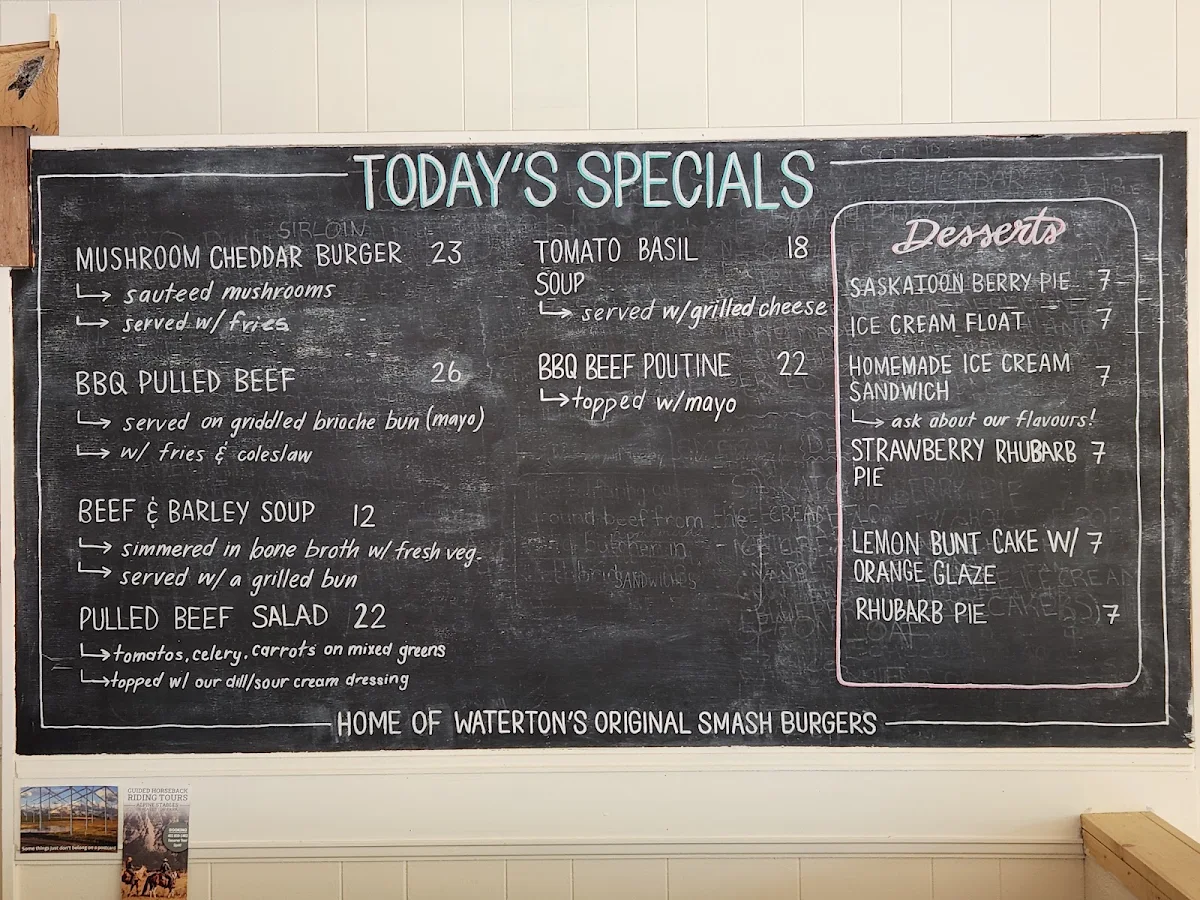 TODAY'S SPECIALS
SIRLOIN
MUSHROOM CHEDDAR BURGER 23
sauteed mushrooms
served w/ fries
BBQ PULLED BEEF 26
served on griddled brioche bun (mayo)
w/ fries & coleslaw
BEEF & BARLEY SOUP 12
simmered in bone broth w/ fresh veg.
served w/ a grilled bun
PULLED BEEF SALAD 22
tomatos, celery, carrots on mixed greens
topped w/ our dill/sour cream dressing
TOMATO BASIL 18
SOUP
served w/grilled cheese
BBQ BEEF POUTINE 22
topped w/mayo
Desserts
SASKATOON BERRY PIE 7
ICE CREAM FLOAT 7
HOMEMADE ICE CREAM 7
SANDWICH
ask about our flavours!
STRAWBERRY RHUBARB 7
PIE
LEMON BUNT CAKE W/ 7
ORANGE GLAZE
RHUBARB PIE 7
HOME OF WATERTON'S ORIGINAL SMASH BURGERS
Some things just don't belong on a postcard
GUIDED HORSEBACK
RIDING TOURS
ALPINE STABLES